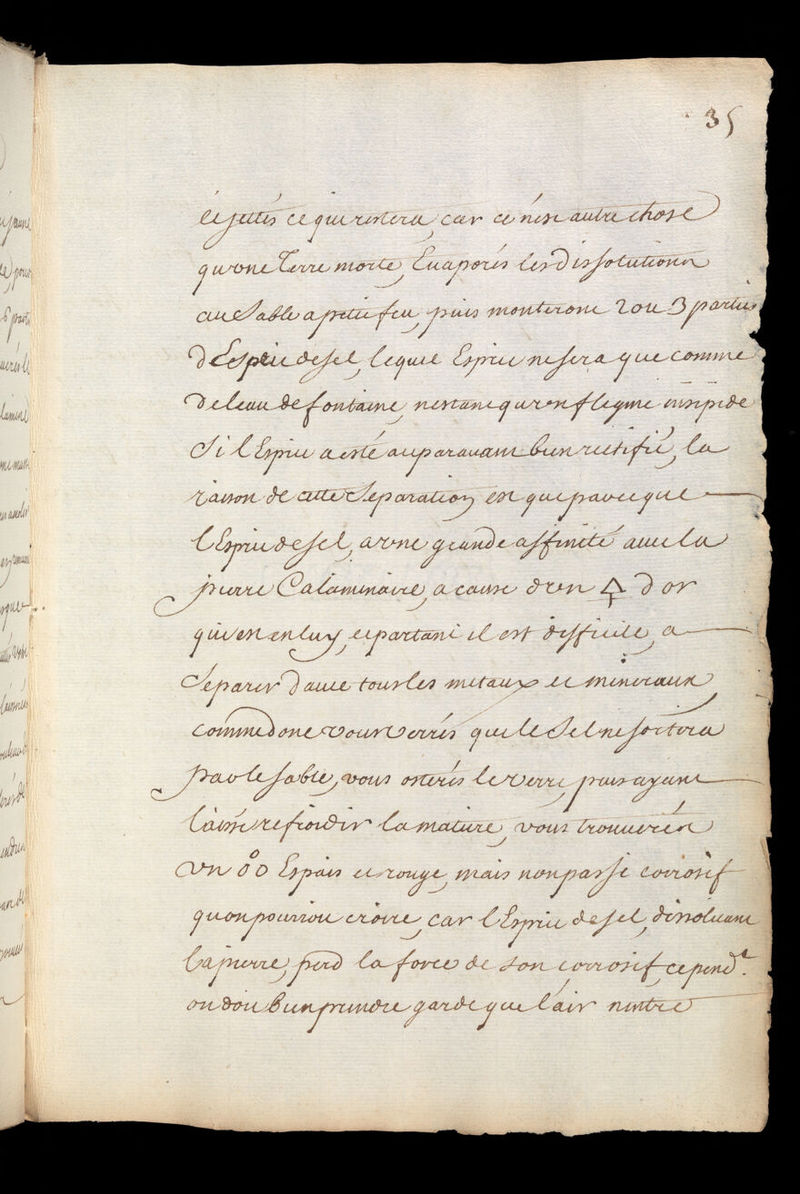 35
et jettés ce qui restera, car ce n'est autre chose
qu'une Terre morte, Evaporés les Dissolutions
au Sable a petit feu, puis monteront 2 ou 3 parties
d'Esprit de sel, lequel Esprit ne sera que comme
de leau de fontaine, nestant qu'un flegme insipide
Si l'Esprit a esté auparavant bien rectifié, la
raison de cette Separation est que parceque
l'Esprit de sel, a une grande affinité avec la
pierre Calaminaire, a cause d'un 🜍 d'or
qui est en luy, et partant il est difficile, a
Separer d'avec tous les metaux et mineraux,
comme donc vous verrés que le Sel ne sortira
par le sable, vous osterés le verre, puis ayant
laissé refroidir la matiere, vous trouverés
un o°o Espais et rouge, mais non pas si corrosif
qu'on pourroit croire, car l'Esprit de sel, dissolvant
la pierre, perd la force de son corrosif, cepend.t
on doit bien prendre garde que l'air nentre